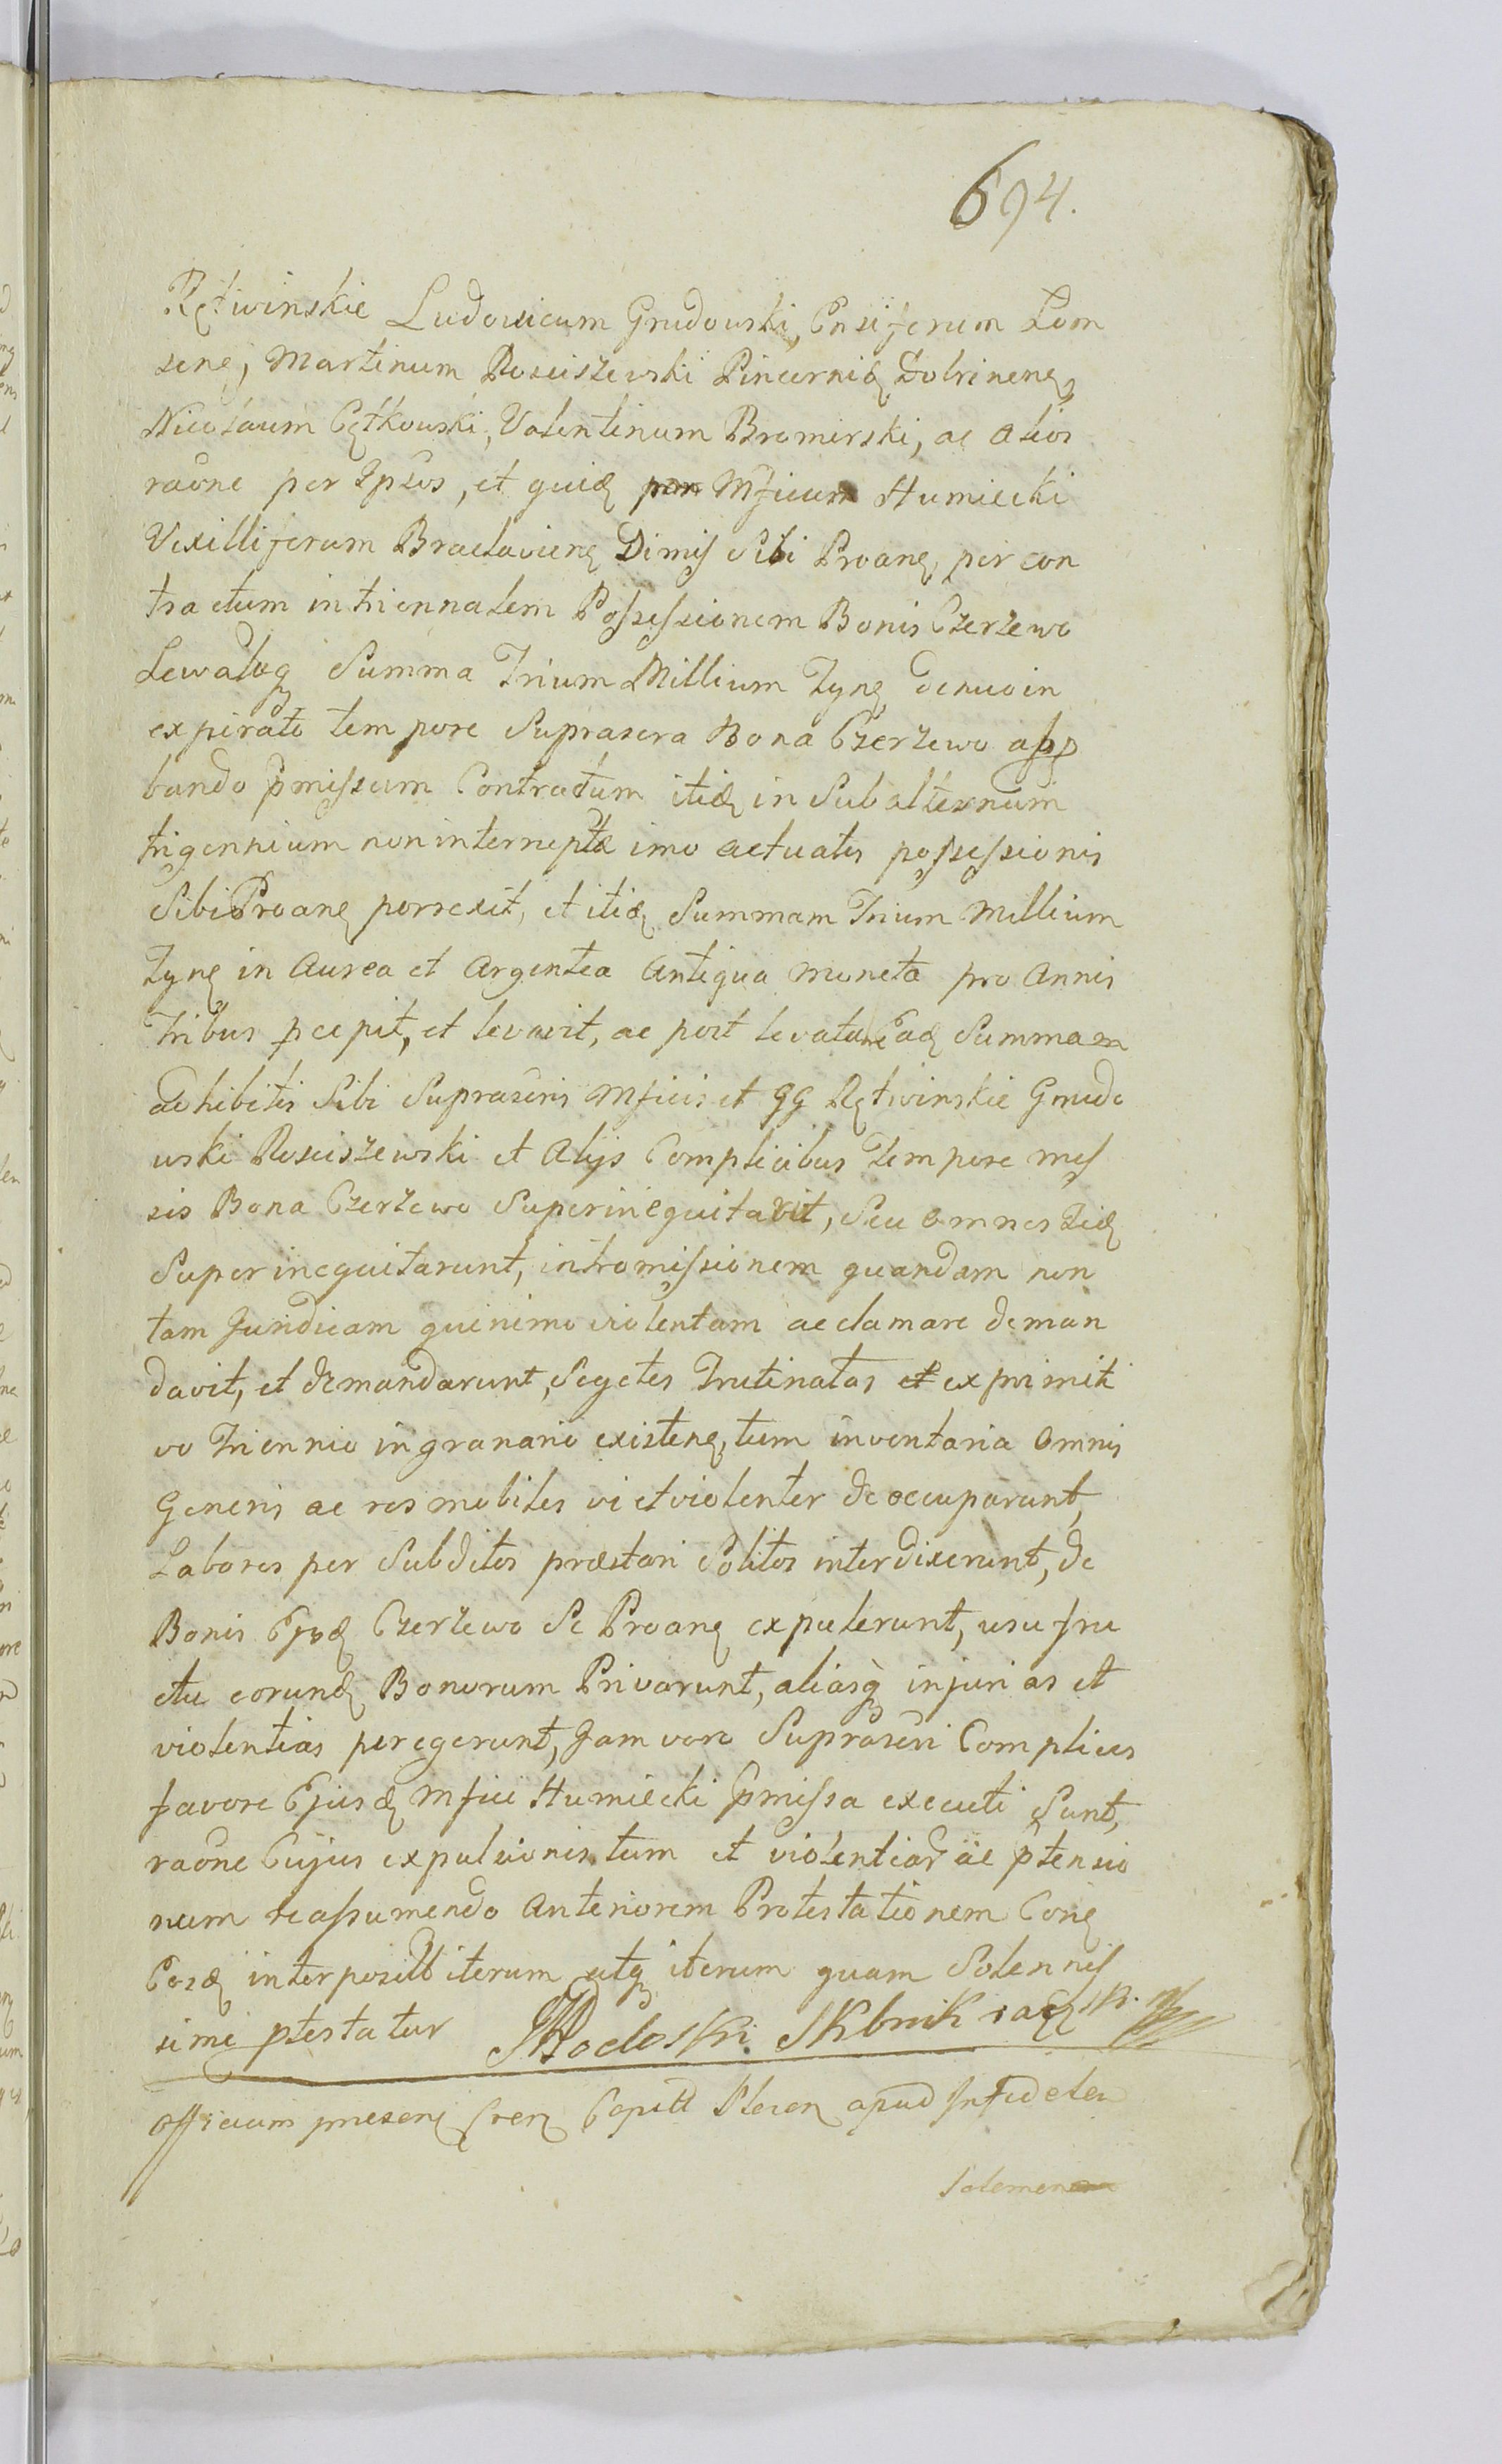 694.
Rętwinskie Ludovicum Grudowski, Ensiferum Lom
zenę, Martinum Rosciszewski Pincernię Dobrinenę,
Nicolaum Cętkowski, Valentinum Bromirski, ac alios
raone per Ipsos, et quidę Mficum Humiecki
Vexilliferum Braclavienę Dimiss Sibi Proanę per con
tractum in triennalem Possessionem Bonis Czerzewo
Levataq Summa Trium Millium Tynę denuo in
expirato tempore Suprascra Bona Czerzewo app
bando pmissum Contractum itidę in Subalternum
trigennium non interruptæ imo actuatis possessionis
Sibi Proanę porrexit, et itidę Summam Trium Millium
Tynę in Aurea et Argentea Antiqua moneta pro Annis
Tribus pcepit, et levavit, ac post levatam Eadę Summam
adhibitis Sibi Suprascris Mficis et GG Rętwinskie Grudo
wski Rosciszewski et Alijs Complicibus Tempore mes
sis Bona Czerzewo Superinequitavit, Seu omnes Iidę
Superinequitarunt, intromissionem quandam non
tam Juridicam quinimo violentam acclamare deman
davit, et demandarunt, Segetes Trutinatas et ex primiti
vo Triennio in granario existenę, tum inventaria Omnis
Generis ac res mobiles vi et violenter deoccuparunt,
Labores per Subditos præstari Solitos interdixerunt, de
Bonis Ejusdę Czerzewo Se Proanę expulerunt, usufru
ctu eorundę Bonorum Privarunt, aliasq injurias et
violentias peregerunt, Jam vero Suprascri Complices
favore Ejusdę Mfici Humiecki pmissa executi Sunt,
raone Cujus expulsionis tum et violentiar ac ptensio
num reassumendo Anteriorem Protestationem Conę
Eosdę interposit iterum atq iterum quam Solennis
sime ptestatur Rodoski Skbnik
Officium presenę Capitt apud Infidelem
Solemen